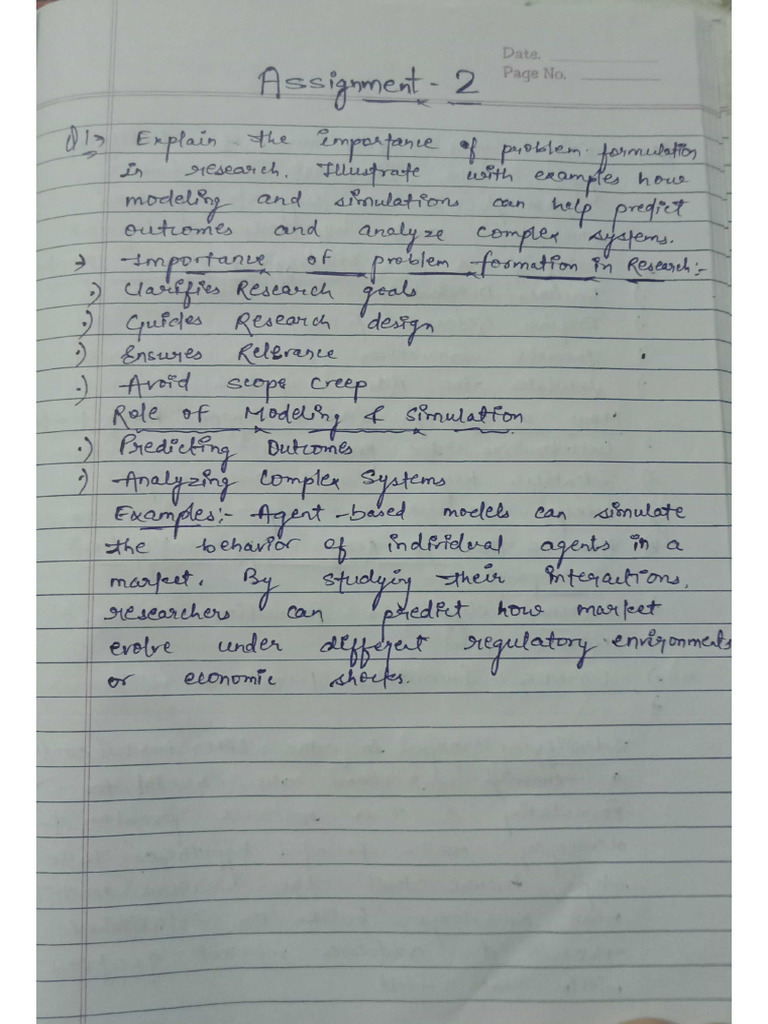 Date.
Page No.
Assignment - 2
Q1> Explain the importance of problem formulation
in research. Illustrate with examples how
modeling and simulations can help predict
outcomes and analyze complex systems.
→ Importance of problem formation in Research:-
•) Clarifies Research goals
•) Guides Research design
•) Ensures Relevance
•) Avoid scope creep
Role of Modeling & Simulation
•) Predicting Outcomes
•) Analyzing Complex Systems
Examples:- Agent-based models can simulate
the behavior of individual agents in a
market. By studying their interactions,
researchers can predict how market
evolve under different regulatory environments
or economic shocks.